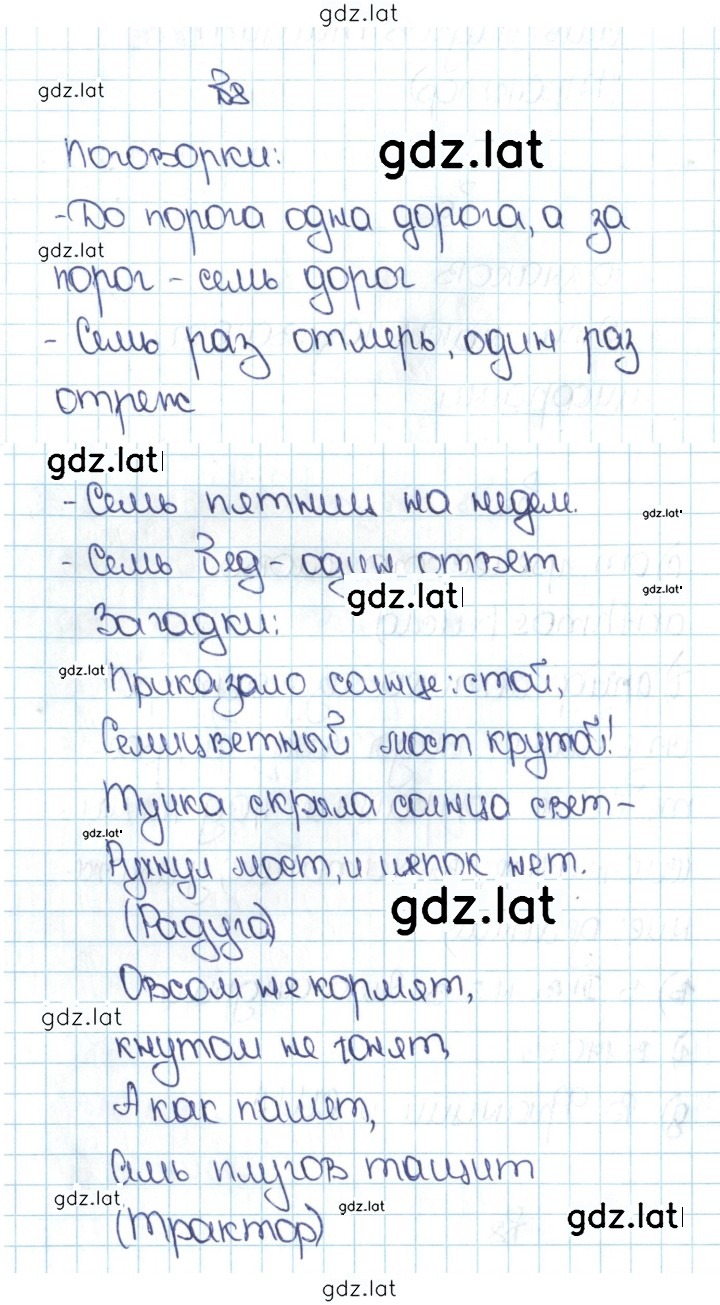 gdz.lat
gdz.lat
Поговорки:
gdz.lat
-До порога одна дорога, а за
gdz.lat
порог - семь дорог
- Семь раз отмерь, один раз
отреж
gdz.lat
- Семь пятниц на недел.
gdz.lat
- Семь бед - один ответ
gdz.lat
gdz.lat
Загадки:
gdz.lat
Приказало солнце: стой,
Семицветный мост крутой!
Тучка скрыла солнца свет-
gdz.lat
Рухнул мост, и щепок нет.
gdz.lat
(Радуга)
Овсом не кормят,
gdz.lat
кнутом не гонят,
А как пашет,
Семь плугов тащит
gdz.lat
gdz.lat
gdz.lat
(Трактор)
gdz.lat